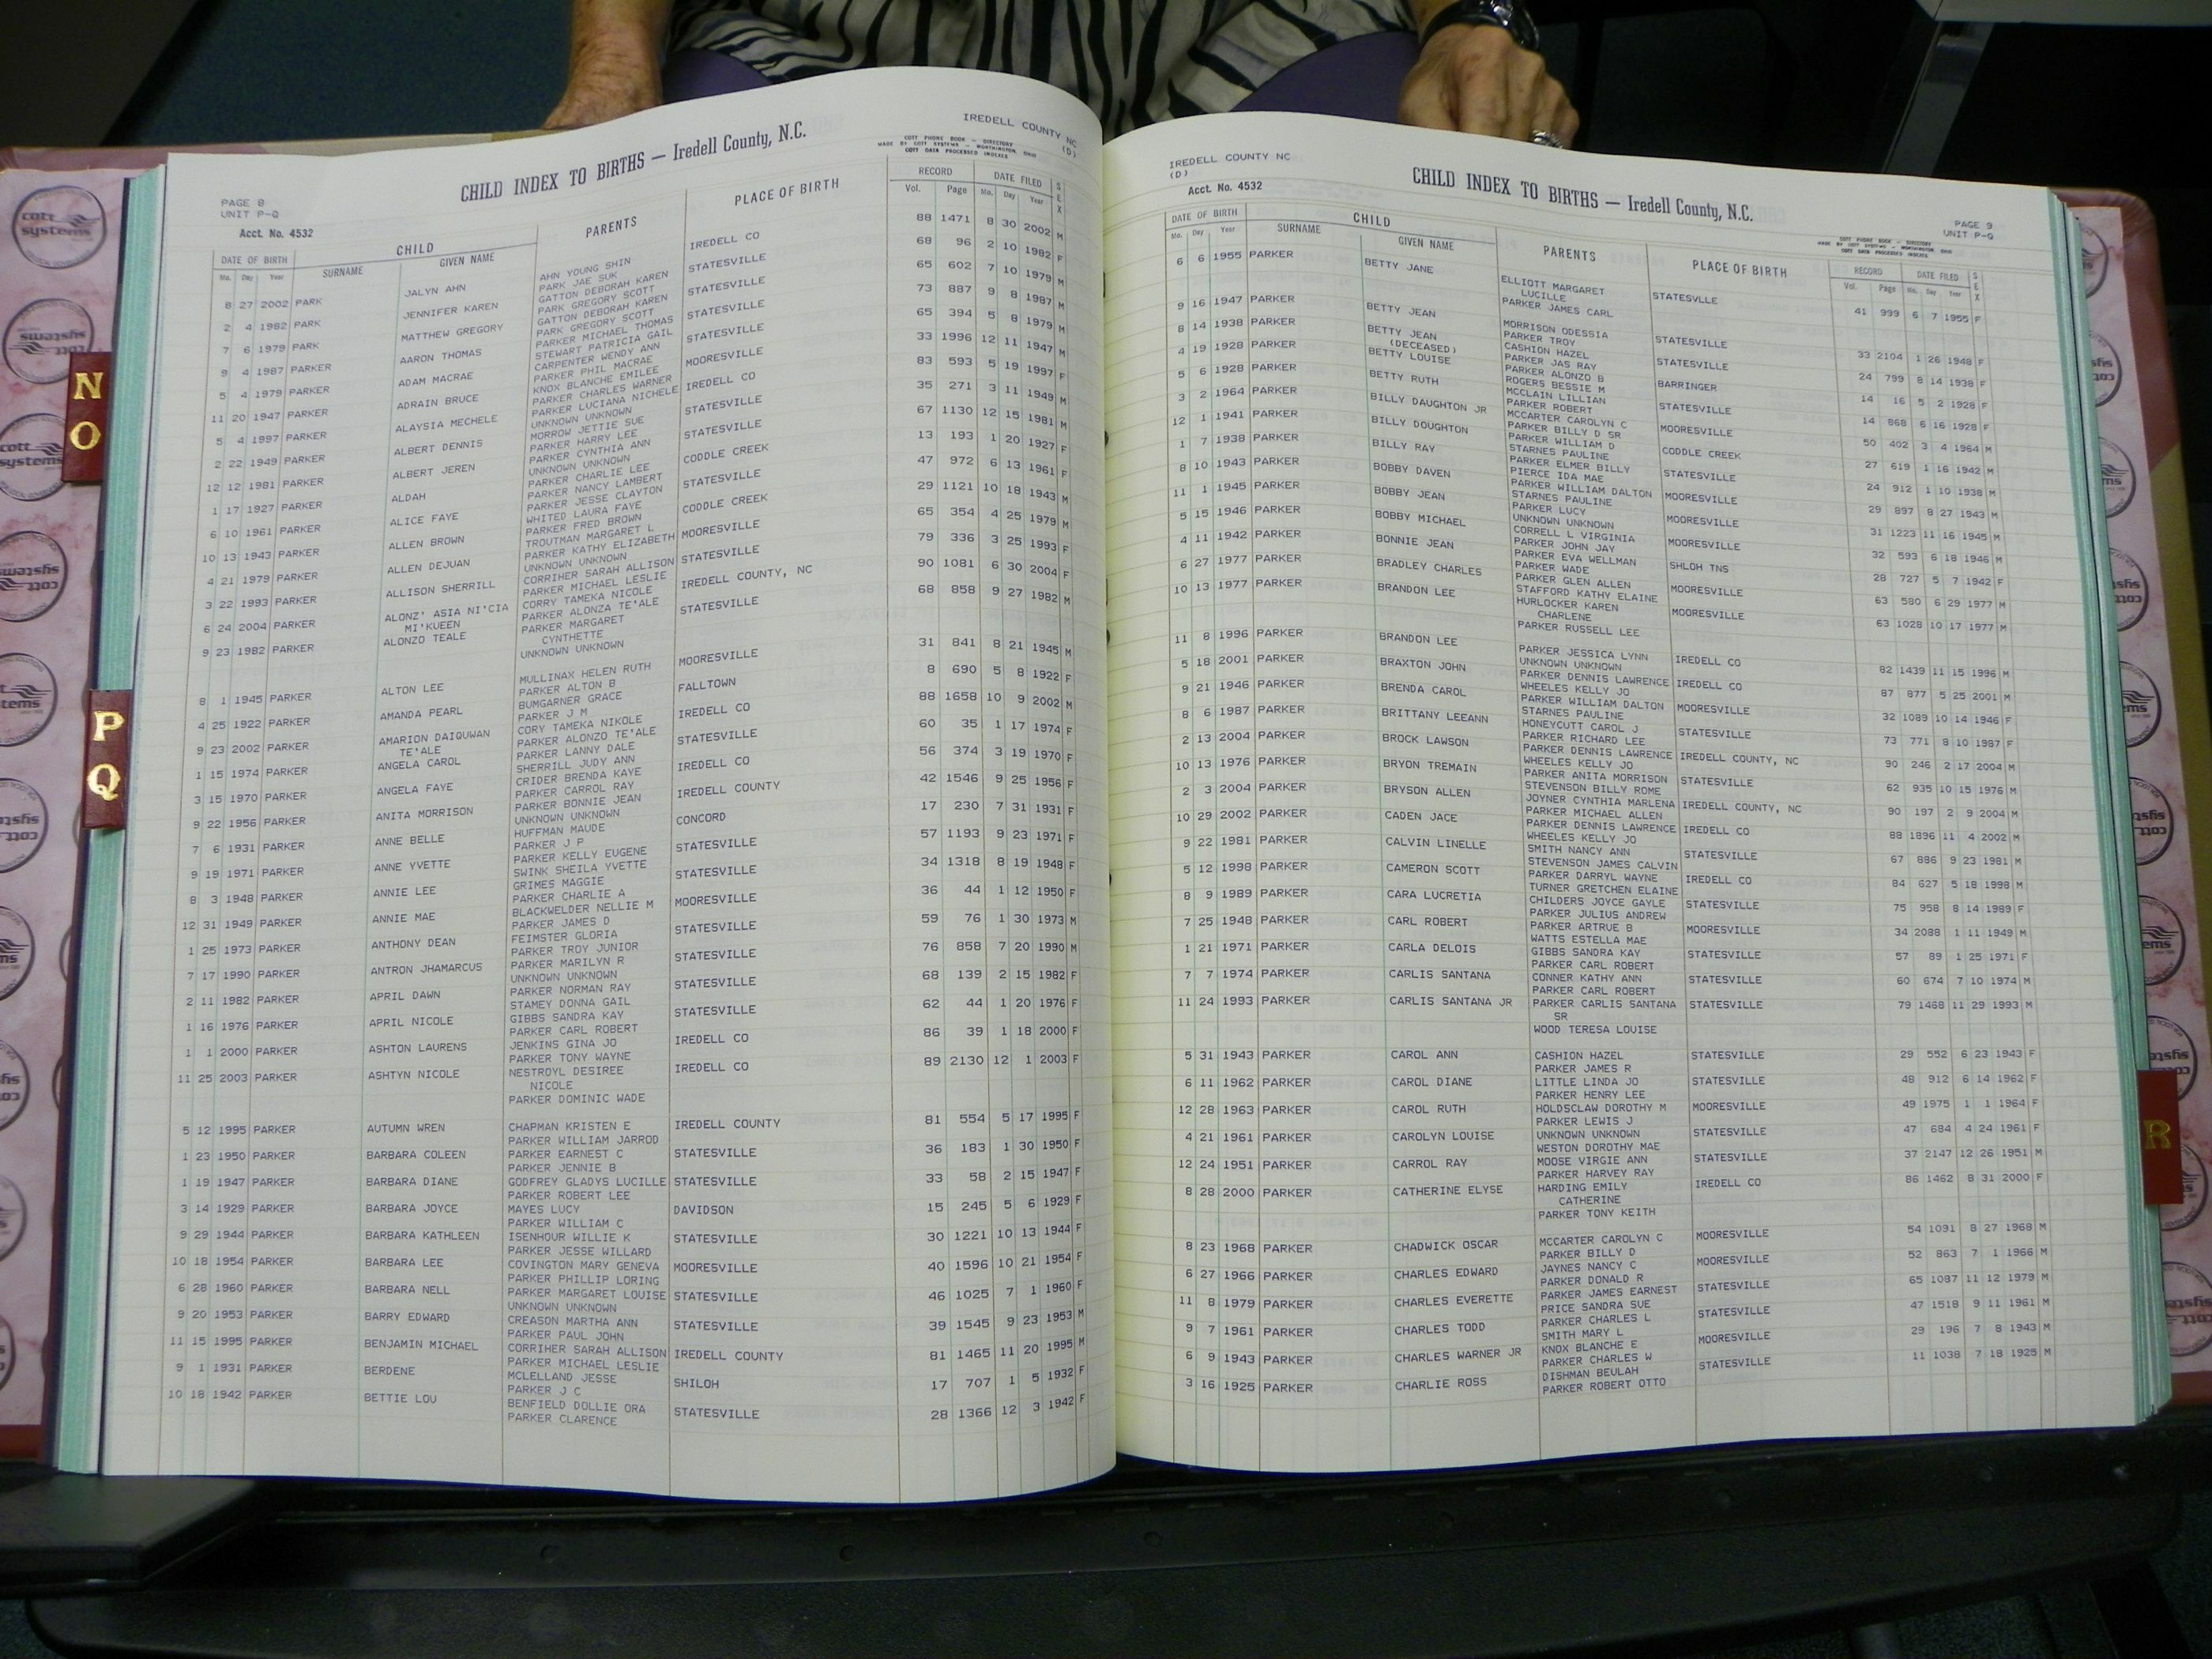 IREDELL COUNTY NC
(D)
CHILD INDEX TO BIRTHS — Iredell County, N.C.
COTT PHONE BOOK — DIRECTORY
MADE BY COTT SYSTEMS — WORTHINGTON, OHIO
COTT DATA PROCESSED INDEXES
PAGE 8
UNIT P-Q
Acct. No. 4532
DATE OF BIRTH CHILD PARENTS PLACE OF BIRTH RECORD DATE FILED SEX
Mo. Day Year SURNAME GIVEN NAME Vol. Page Mo. Day Year
8 27 2002 PARK JALYN AHN AHN YOUNG SHIN IREDELL CO 88 1471 8 30 2002 M
PARK JAE SUK
2 4 1982 PARK JENNIFER KAREN GATTON DEBORAH KAREN STATESVILLE 68 96 2 10 1982 F
PARK GREGORY SCOTT
7 6 1979 PARK MATTHEW GREGORY GATTON DEBORAH KAREN STATESVILLE 65 602 7 10 1979 M
PARK GREGORY SCOTT
9 4 1987 PARKER AARON THOMAS PARKER MICHAEL THOMAS STATESVILLE 73 887 9 8 1987 M
STEWART PATRICIA GAIL
5 4 1979 PARKER ADAM MACRAE CARPENTER WENDY ANN STATESVILLE 65 394 5 8 1979 M
PARKER PHIL MACRAE
11 20 1947 PARKER ADRAIN BRUCE KNOX BLANCHE EMILEE MOORESVILLE 33 1996 12 11 1947 M
PARKER CHARLES WARNER
5 4 1997 PARKER ALAYSIA MECHELE PARKER LUCIANA NICHELE IREDELL CO 83 593 5 19 1997 F
UNKNOWN UNKNOWN
2 22 1949 PARKER ALBERT DENNIS MORROW JETTIE SUE STATESVILLE 35 271 3 11 1949 M
PARKER HARRY LEE
12 12 1981 PARKER ALBERT JEREN PARKER CYNTHIA ANN STATESVILLE 67 1130 12 15 1981 M
UNKNOWN UNKNOWN
1 17 1927 PARKER ALDAH PARKER CHARLIE LEE CODDLE CREEK 13 193 1 20 1927 F
PARKER NANCY LAMBERT
6 10 1961 PARKER ALICE FAYE PARKER JESSE CLAYTON STATESVILLE 47 972 6 13 1961 F
WHITED LAURA FAYE
10 13 1943 PARKER ALLEN BROWN PARKER FRED BROWN CODDLE CREEK 29 1121 10 18 1943 M
TROUTMAN MARGARET L
4 21 1979 PARKER ALLEN DEJUAN PARKER KATHY ELIZABETH MOORESVILLE 65 354 4 25 1979 M
UNKNOWN UNKNOWN
3 22 1993 PARKER ALLISON SHERRILL CORRIHER SARAH ALLISON STATESVILLE 79 336 3 25 1993 F
PARKER MICHAEL LESLIE
6 24 2004 PARKER ALONZ' ASIA NI'CIA CORRY TAMEKA NICOLE IREDELL COUNTY, NC 90 1081 6 30 2004 F
MI'KUEEN PARKER ALONZA TE'ALE
9 23 1982 PARKER ALONZO TEALE PARKER MARGARET STATESVILLE 68 858 9 27 1982 M
CYNTHETTE
UNKNOWN UNKNOWN
8 1 1945 PARKER ALTON LEE MULLINAX HELEN RUTH MOORESVILLE 31 841 8 21 1945 M
PARKER ALTON B
4 25 1922 PARKER AMANDA PEARL BUMGARNER GRACE FALLTOWN 8 690 5 8 1922 F
PARKER J M
9 23 2002 PARKER AMARION DAIQUWAN CORY TAMEKA NIKOLE IREDELL CO 88 1658 10 9 2002 M
TE'ALE PARKER ALONZO TE'ALE
1 15 1974 PARKER ANGELA CAROL PARKER LANNY DALE STATESVILLE 60 35 1 17 1974 F
SHERRILL JUDY ANN
3 15 1970 PARKER ANGELA FAYE CRIDER BRENDA KAYE IREDELL CO 56 374 3 19 1970 F
PARKER CARROL RAY
9 22 1956 PARKER ANITA MORRISON PARKER BONNIE JEAN IREDELL COUNTY 42 1546 9 25 1956 F
UNKNOWN UNKNOWN
7 6 1931 PARKER ANNE BELLE HUFFMAN MAUDE CONCORD 17 230 7 31 1931 F
PARKER J P
9 19 1971 PARKER ANNE YVETTE PARKER KELLY EUGENE STATESVILLE 57 1193 9 23 1971 F
SWINK SHEILA YVETTE
8 3 1948 PARKER ANNIE LEE GRIMES MAGGIE STATESVILLE 34 1318 8 19 1948 F
PARKER CHARLIE A
12 31 1949 PARKER ANNIE MAE BLACKWELDER NELLIE M MOORESVILLE 36 44 1 12 1950 F
PARKER JAMES D
1 25 1973 PARKER ANTHONY DEAN FEIMSTER GLORIA STATESVILLE 59 76 1 30 1973 M
PARKER TROY JUNIOR
7 17 1990 PARKER ANTRON JHAMARCUS PARKER MARILYN R STATESVILLE 76 858 7 20 1990 M
UNKNOWN UNKNOWN
2 11 1982 PARKER APRIL DAWN PARKER NORMAN RAY STATESVILLE 68 139 2 15 1982 F
STAMEY DONNA GAIL
1 16 1976 PARKER APRIL NICOLE GIBBS SANDRA KAY STATESVILLE 62 44 1 20 1976 F
PARKER CARL ROBERT
1 1 2000 PARKER ASHTON LAURENS JENKINS GINA JO IREDELL CO 86 39 1 18 2000 F
PARKER TONY WAYNE
11 25 2003 PARKER ASHTYN NICOLE NESTROYL DESIREE IREDELL CO 89 2130 12 1 2003 F
NICOLE
PARKER DOMINIC WADE
5 12 1995 PARKER AUTUMN WREN CHAPMAN KRISTEN E IREDELL COUNTY 81 554 5 17 1995 F
PARKER WILLIAM JARROD
1 23 1950 PARKER BARBARA COLEEN PARKER EARNEST C STATESVILLE 36 183 1 30 1950 F
PARKER JENNIE B
1 19 1947 PARKER BARBARA DIANE GODFREY GLADYS LUCILLE STATESVILLE 33 58 2 15 1947 F
PARKER ROBERT LEE
3 14 1929 PARKER BARBARA JOYCE MAYES LUCY DAVIDSON 15 245 5 6 1929 F
PARKER WILLIAM C
9 29 1944 PARKER BARBARA KATHLEEN ISENHOUR WILLIE K STATESVILLE 30 1221 10 13 1944 F
PARKER JESSE WILLARD
10 18 1954 PARKER BARBARA LEE COVINGTON MARY GENEVA MOORESVILLE 40 1596 10 21 1954 F
PARKER PHILLIP LORING
6 28 1960 PARKER BARBARA NELL PARKER MARGARET LOUISE STATESVILLE 46 1025 7 1 1960 F
UNKNOWN UNKNOWN
9 20 1953 PARKER BARRY EDWARD CREASON MARTHA ANN STATESVILLE 39 1545 9 23 1953 M
PARKER PAUL JOHN
11 15 1995 PARKER BENJAMIN MICHAEL CORRIHER SARAH ALLISON IREDELL COUNTY 81 1465 11 20 1995 M
PARKER MICHAEL LESLIE
9 1 1931 PARKER BERDENE MCLELLAND JESSE SHILOH 17 707 1 5 1932 F
PARKER J C
10 18 1942 PARKER BETTIE LOU BENFIELD DOLLIE ORA STATESVILLE 28 1366 12 3 1942 F
PARKER CLARENCE
IREDELL COUNTY NC
(D)
Acct. No. 4532
CHILD INDEX TO BIRTHS — Iredell County, N.C.
PAGE 9
UNIT P-Q
COTT PHONE BOOK — DIRECTORY
MADE BY COTT SYSTEMS — WORTHINGTON, OHIO
COTT DATA PROCESSED INDEXES
DATE OF BIRTH CHILD PARENTS PLACE OF BIRTH RECORD DATE FILED SEX
Mo. Day Year SURNAME GIVEN NAME Vol. Page Mo. Day Year
6 6 1955 PARKER BETTY JANE ELLIOTT MARGARET STATESVLLE 41 999 6 7 1955 F
LUCILLE
PARKER JAMES CARL
9 16 1947 PARKER BETTY JEAN MORRISON ODESSIA STATESVILLE 33 2104 1 26 1948 F
PARKER TROY
8 14 1938 PARKER BETTY JEAN CASHION HAZEL STATESVILLE 24 799 8 14 1938 F
(DECEASED) PARKER JAS RAY
4 19 1928 PARKER BETTY LOUISE PARKER ALONZO B BARRINGER 14 16 5 2 1928 F
ROGERS BESSIE M
5 6 1928 PARKER BETTY RUTH MCCLAIN LILLIAN STATESVILLE 14 868 6 16 1928 F
PARKER ROBERT
3 2 1964 PARKER BILLY DAUGHTON JR MCCARTER CAROLYN C MOORESVILLE 50 402 3 4 1964 M
PARKER BILLY D SR
12 1 1941 PARKER BILLY DOUGHTON PARKER WILLIAM D CODDLE CREEK 27 619 1 16 1942 M
STARNES PAULINE
1 7 1938 PARKER BILLY RAY PARKER ELMER BILLY STATESVILLE 24 912 1 10 1938 M
PIERCE IDA MAE
8 10 1943 PARKER BOBBY DAVEN PARKER WILLIAM DALTON MOORESVILLE 29 897 8 27 1943 M
STARNES PAULINE
11 1 1945 PARKER BOBBY JEAN PARKER LUCY MOORESVILLE 31 1223 11 16 1945 M
UNKNOWN UNKNOWN
5 15 1946 PARKER BOBBY MICHAEL CORRELL L VIRGINIA MOORESVILLE 32 593 6 18 1946 M
PARKER JOHN JAY
4 11 1942 PARKER BONNIE JEAN PARKER EVA WELLMAN SHLOH TNS 28 727 5 7 1942 F
PARKER WADE
6 27 1977 PARKER BRADLEY CHARLES PARKER GLEN ALLEN MOORESVILLE 63 580 6 29 1977 M
STAFFORD KATHY ELAINE
10 13 1977 PARKER BRANDON LEE HURLOCKER KAREN MOORESVILLE 63 1028 10 17 1977 M
CHARLENE
PARKER RUSSELL LEE
11 8 1996 PARKER BRANDON LEE PARKER JESSICA LYNN IREDELL CO 82 1439 11 15 1996 M
UNKNOWN UNKNOWN
5 18 2001 PARKER BRAXTON JOHN PARKER DENNIS LAWRENCE IREDELL CO 87 877 5 25 2001 M
WHEELES KELLY JO
9 21 1946 PARKER BRENDA CAROL PARKER WILLIAM DALTON MOORESVILLE 32 1089 10 14 1946 F
STARNES PAULINE
8 6 1987 PARKER BRITTANY LEEANN HONEYCUTT CAROL J STATESVILLE 73 771 8 10 1987 F
PARKER RICHARD LEE
2 13 2004 PARKER BROCK LAWSON PARKER DENNIS LAWRENCE IREDELL COUNTY, NC 90 246 2 17 2004 M
WHEELES KELLY JO
10 13 1976 PARKER BRYON TREMAIN PARKER ANITA MORRISON STATESVILLE 62 935 10 15 1976 M
STEVENSON BILLY ROME
2 3 2004 PARKER BRYSON ALLEN JOYNER CYNTHIA MARLENA IREDELL COUNTY, NC 90 197 2 9 2004 M
PARKER MICHAEL ALLEN
10 29 2002 PARKER CADEN JACE PARKER DENNIS LAWRENCE IREDELL CO 88 1896 11 4 2002 M
WHEELES KELLY JO
9 22 1981 PARKER CALVIN LINELLE SMITH NANCY ANN STATESVILLE 67 886 9 23 1981 M
STEVENSON JAMES CALVIN
5 12 1998 PARKER CAMERON SCOTT PARKER DARRYL WAYNE IREDELL CO 84 627 5 18 1998 M
TURNER GRETCHEN ELAINE
8 9 1989 PARKER CARA LUCRETIA CHILDERS JOYCE GAYLE STATESVILLE 75 958 8 14 1989 F
PARKER JULIUS ANDREW
7 25 1948 PARKER CARL ROBERT PARKER ARTRUE B MOORESVILLE 34 2088 1 11 1949 M
WATTS ESTELLA MAE
1 21 1971 PARKER CARLA DELOIS GIBBS SANDRA KAY STATESVILLE 57 89 1 25 1971 F
PARKER CARL ROBERT
7 7 1974 PARKER CARLIS SANTANA CONNER KATHY ANN STATESVILLE 60 674 7 10 1974 M
PARKER CARL ROBERT
11 24 1993 PARKER CARLIS SANTANA JR PARKER CARLIS SANTANA STATESVILLE 79 1468 11 29 1993 M
SR
WOOD TERESA LOUISE
5 31 1943 PARKER CAROL ANN CASHION HAZEL STATESVILLE 29 552 6 23 1943 F
PARKER JAMES R
6 11 1962 PARKER CAROL DIANE LITTLE LINDA JO STATESVILLE 48 912 6 14 1962 F
PARKER HENRY LEE
12 28 1963 PARKER CAROL RUTH HOLDSCLAW DOROTHY M MOORESVILLE 49 1975 1 1 1964 F
PARKER LEWIS J
4 21 1961 PARKER CAROLYN LOUISE UNKNOWN UNKNOWN STATESVILLE 47 684 4 24 1961 F
WESTON DOROTHY MAE
12 24 1951 PARKER CARROL RAY MOOSE VIRGIE ANN STATESVILLE 37 2147 12 26 1951 M
PARKER HARVEY RAY
8 28 2000 PARKER CATHERINE ELYSE HARDING EMILY IREDELL CO 86 1462 8 31 2000 F
CATHERINE
PARKER TONY KEITH
8 23 1968 PARKER CHADWICK OSCAR MCCARTER CAROLYN C MOORESVILLE 54 1091 8 27 1968 M
PARKER BILLY D
6 27 1966 PARKER CHARLES EDWARD JAYNES NANCY C MOORESVILLE 52 863 7 1 1966 M
PARKER DONALD R
11 8 1979 PARKER CHARLES EVERETTE PARKER JAMES EARNEST STATESVILLE 65 1087 11 12 1979 M
PRICE SANDRA SUE
9 7 1961 PARKER CHARLES TODD PARKER CHARLES L STATESVILLE 47 1518 9 11 1961 M
SMITH MARY L
6 9 1943 PARKER CHARLES WARNER JR KNOX BLANCHE E MOORESVILLE 29 196 7 8 1943 M
PARKER CHARLES W
3 16 1925 PARKER CHARLIE ROSS DISHMAN BEULAH STATESVILLE 11 1038 7 18 1925 M
PARKER ROBERT OTTO
N
O
P
Q
R
cott systems